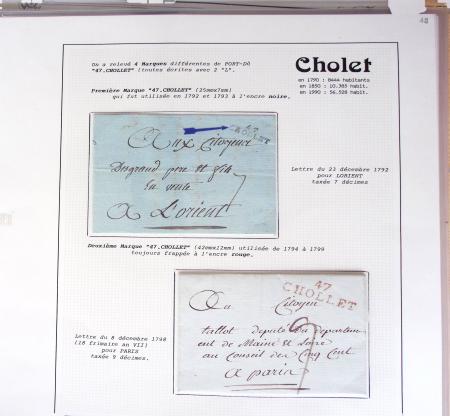 48
Cholet
en 1790 : 8444 habitants
en 1850 : 10.365 habit.
en 1990 : 56.528 habit.
On a relevé 4 Marques différentes de PORT-DÛ
"47.CHOLLET" (toutes écrites avec 2 "L".
Première Marque "47.CHOLLET" (25mmx7mm)
qui fut utilisée en 1792 et 1793 à l'encre noire.
47
CHOLLET
Aux Citoyens
Desgrand pere et fils
la veuve
7
A L'orient
Lettre du 23 décembre 1792
pour LORIENT
taxée 7 décimes
Deuxième Marque "47.CHOLLET" (42mmx12mm) utilisée de 1794 à 1799
toujours frappée à l'encre rouge.
47
CHOLLET
Au Citoyen
tallot deputé du departem
ent de Maine et Loire
au Conseil des Cinq Cent
9
a paris
Lettre du 8 décembre 1798
(18 frimaire an VII)
pour PARIS
taxée 9 décimes.